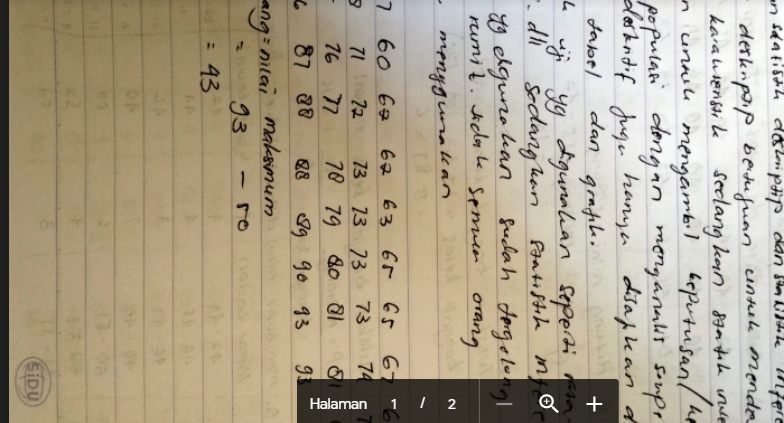 statistik deskriptif dan statistik infere
deskriptif bertujuan untuk menda
karakteristik sedangkan statistik infe
n untuk mengambil keputusan/ke
populasi dengan menganalis sampe
deskritif juga hanya disajikan d
tabel dan grafik.
k uji yg digunakan seperti rata-
. dll sedangkan statistik infere
yg digunakan sudah tergolong
rumit. tidak semua orang
menggunakan
7 60 62 62 63 65 65 67 6
8 71 72 73 73 73 73 74 7
76 77 78 79 80 81 81
6 87 88 88 89 90 93 93
ang = nilai maksimum
= 93 - 50
= 43
SiDU
Halaman 1 / 2